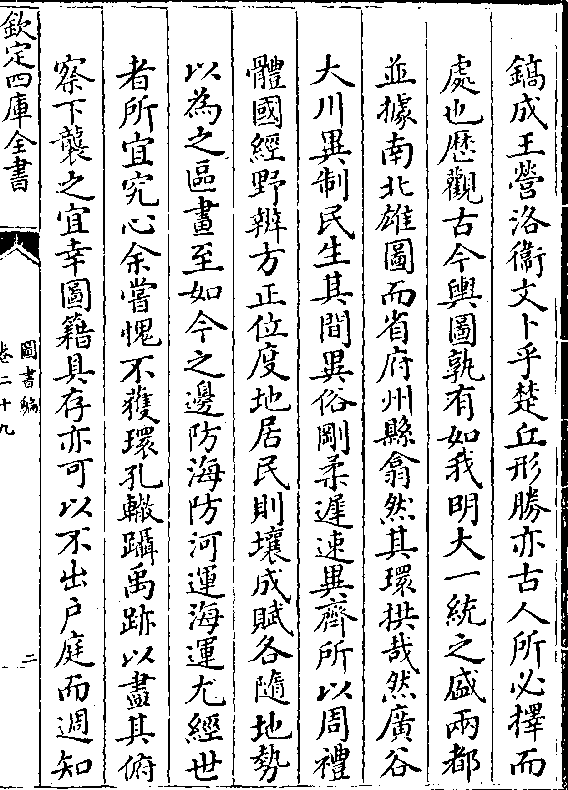 鎬成王營洛衞文卜乎楚丘形勝亦古人所必擇而
處也歴觀古今輿圖孰有如我明大一統之盛兩都
並據南北雄圖而省府州縣翕然其環拱哉然廣谷
大川異制民生其間異俗剛柔遲速異齊所以周禮
體國經野辨方正位度地居民則壤成賦各隨地勢
以為之區畫至如今之邊防海防河運海運尤經世
者所宜究心余嘗愧不獲環孔轍躡禹跡以盡其俯
察下襲之宜幸圖籍具存亦可以不出户庭而週知
欽定四庫全書
圖書編
卷二十九
二